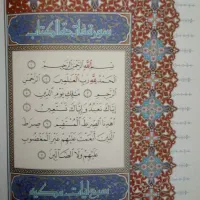 سورة فاتحة الكتاب
بسم الله الرحمن الرحيم
الحمد لله رب العالمين الرحمن
الرحيم مالك يوم الدين
إياك نعبد وإياك نستعين
اهدنا الصراط المستقيم صراط
الذين أنعمت عليهم غير المغضوب
عليهم ولا الضالين